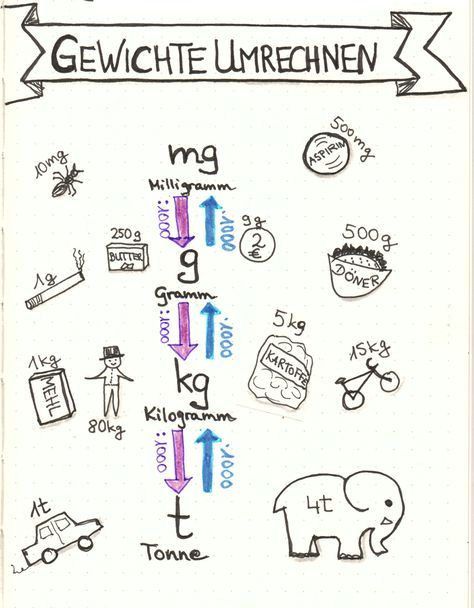 GEWICHTE UMRECHNEN
500mg
ASPIRIN
10mg
mg
Milligramm
:1000
·1000
9g
2
€
250g
BUTTER
500g
DÖNER
1g
g
Gramm
:1000
·1000
5kg
KARTOFFEL
15kg
1kg
MEHL
80kg
kg
Kilogramm
:1000
·1000
1t
t
Tonne
4t